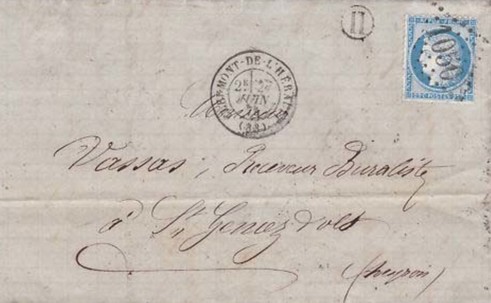 II
1059
CLERMONT-DE-L'HÉRAULT
2E 27
JUIN
(33)
Monsieur
Vassas, Receveur Buraliste
à St Geniez d'olt
(Aveyron)